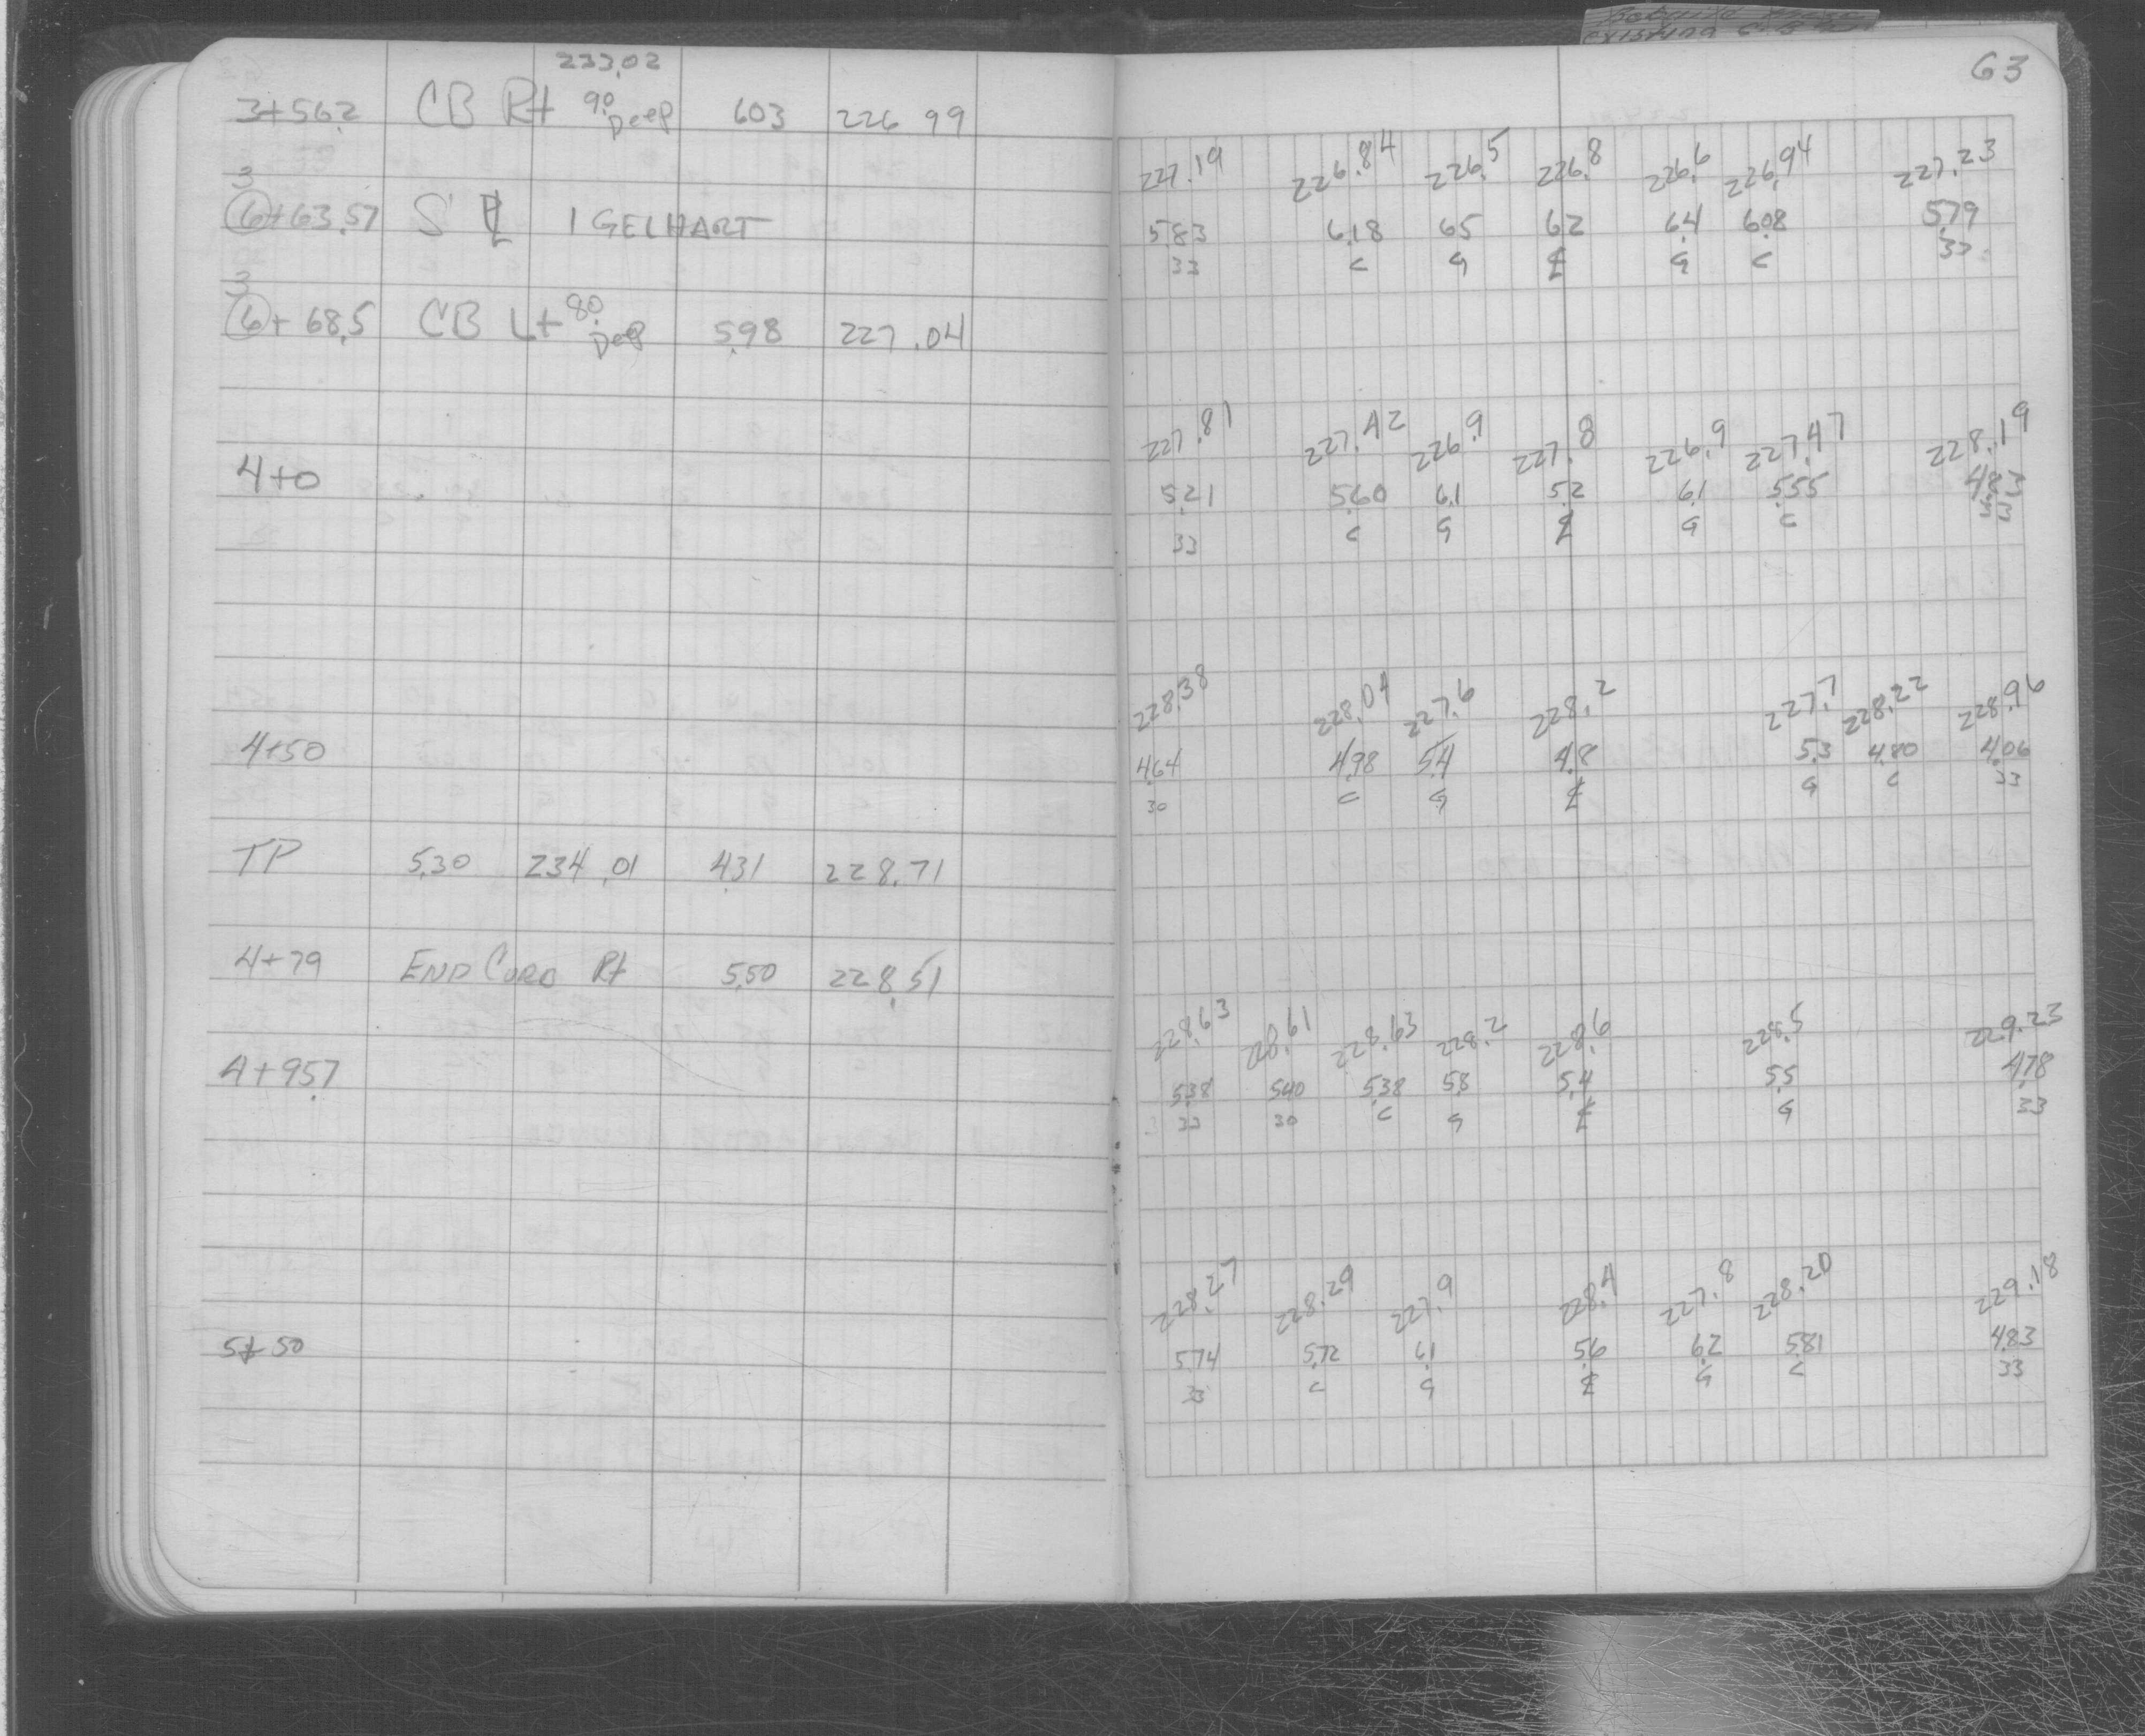 existing
63
233.02
3+56.2 CB Rt 9.0 Deep 6.03 226.99
227.19 226.84 226.5 226.8 226.6 226.94 227.23
3
6+63.57 S ℄ 1 GELHART
5.83 6.18 6.5 6.2 6.4 6.08 5.79
33 C G ℄ G C 33
3
6+68.5 CB Lt 8.0 Deep 5.98 227.04
227.81 227.42 226.9 227.8 226.9 227.47 228.19
4+0
5.21 5.60 6.1 5.2 6.1 5.55 4.83
33 C G ℄ G C 33
228.38 228.04 227.6 228.2 227.7 228.22 228.96
4+50
4.64 4.98 5.4 4.8 5.3 4.80 4.06
30 C G ℄ G C 33
TP 5.30 234.01 4.31 228.71
4+79 END CURB Rt 5.50 228.51
228.63 228.61 228.63 228.2 228.6 228.5 229.23
4+95.7
5.38 5.40 5.38 5.8 5.4 5.5 4.78
33 30 C G ℄ G 33
228.27 228.29 227.9 228.4 227.8 228.20 229.18
5+50
5.74 5.72 6.1 5.6 6.2 5.81 4.83
33 C G ℄ G C 33